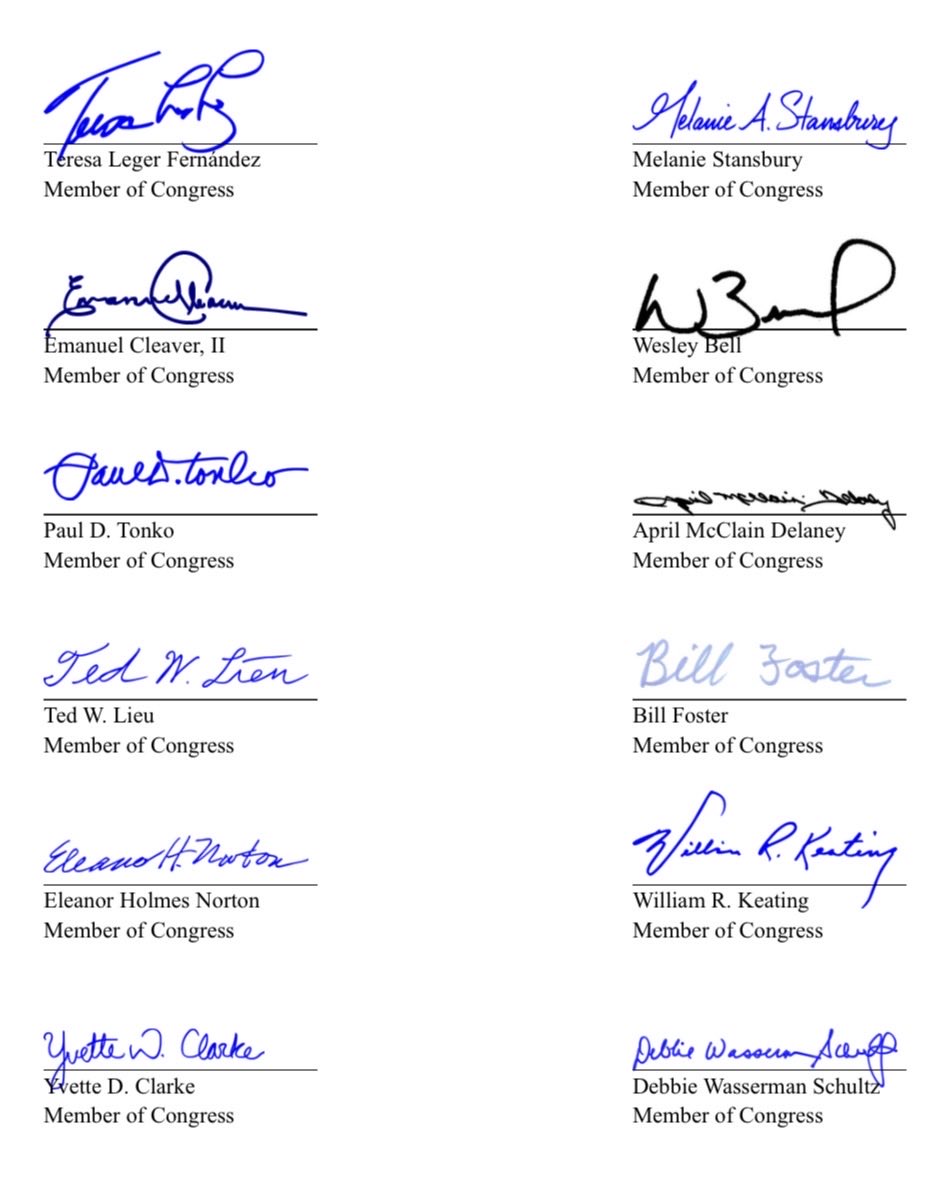 Teresa Leger Fernández
Member of Congress
Melanie A. Stansbury
Melanie Stansbury
Member of Congress
Emanuel Cleaver
Emanuel Cleaver, II
Member of Congress
Wesley Bell
Member of Congress
Paul D. Tonko
Paul D. Tonko
Member of Congress
April McClain Delaney
April McClain Delaney
Member of Congress
Ted W. Lieu
Ted W. Lieu
Member of Congress
Bill Foster
Bill Foster
Member of Congress
Eleanor H. Norton
Eleanor Holmes Norton
Member of Congress
William R. Keating
William R. Keating
Member of Congress
Yvette D. Clarke
Yvette D. Clarke
Member of Congress
Debbie Wasserman
Debbie Wasserman Schultz
Member of Congress